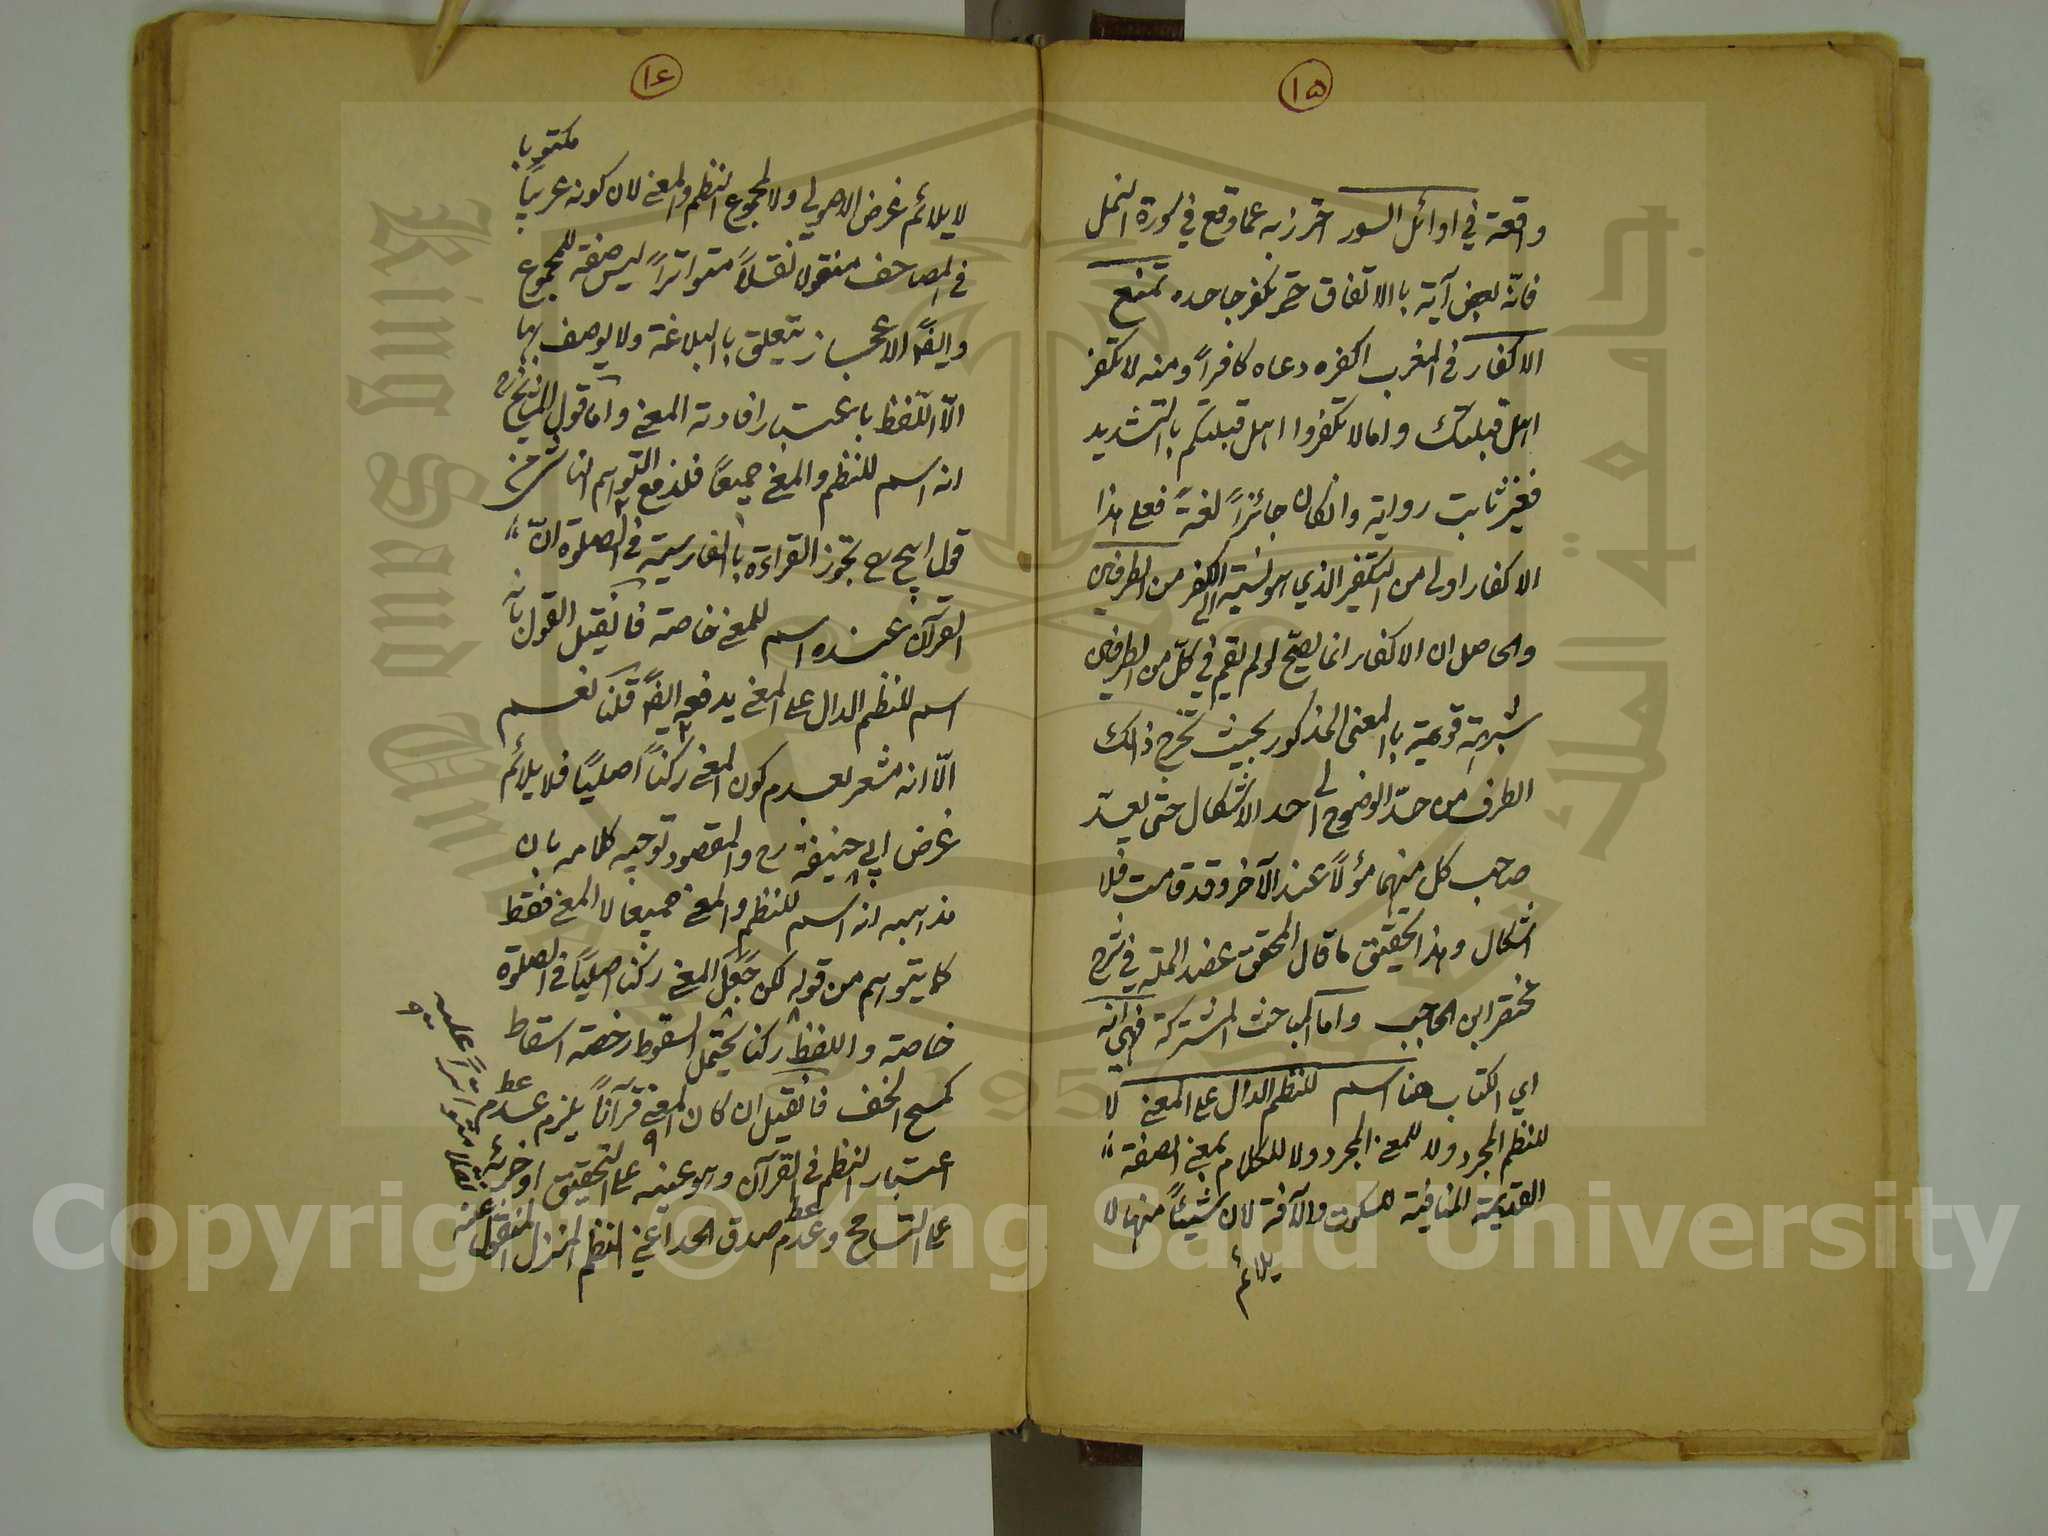 ١٥
واقعة في اوائل السور احترز به عما وقع في سورة النمل
فانه بعض آية بالاتفاق حتى يكفر جاحده تمنع
الاكفار في المغرب اكفره دعاه كافراً ومنه لا تكفر
اهل قبلتك واما لا تكفروا اهل قبلتكم بالتشديد
فغير ثابت رواية وانكان جائزاً لغة فعلى هذا
الاكفار اولى من التكفير الذي هو نسبة الى الكفر من الطرفين
والحاصل ان الاكفار انما يصح لو لم يقم في كلّ من الطرفين
شبهة قوية بالمعنى المذكور بحيث تخرج ذالك
الطرف من حدّ الوضوح الى حد الاشكال حتى يعدّ
صاحب كل منهما مؤلاً عند الآخر وقد قامت فلا
اشكال وهذا تحقيق ما قال المحقق عضد الملة في شرح
مختصر ابن الحاجب واما المباحث المشتركة فهي انه
اي الكتاب هنا اسم للنظم الدال على المعنى لا
للنظم المجرد ولا للمعنى المجرد ولا للكلام بمعنى الصفة
القديمة المنافية للسكوت والآفة لان شيئاً منها لا
يلائم
١٤
مكتوبا
لا يلائم غرض الاصولي ولا لمجموع النظم والمعنى لان كونه عربياً
في المصاحف منقولا نقلاً متواتراً ليس صفة للمجموع
وايضاً الاعجاز يتعلق بالبلاغة ولا يوصف بها
الّا اللّفظ باعتبار افادته المعنى واما قول المشايخ رح
انه اسم للنظم والمعنى جميعاً فلدفع التوهم الناشئ من
قول ابيح رح بجوز القراءة بالفارسية في الصلوة انّ
القرآن عنده اسم للمعنى خاصة فان قيل القول بانه
اسم للنظم الدال على المعنى يدفعه ايضاً قلنا نعم
الّا انه مشعر بعدم كون المعنى ركناً اصلياً فلا يلائم
غرض ابي حنيفة رح والمقصود توجيه كلامه بان
مذهبه انه اسم للنظم والمعنى جميعا لا المعنى فقط
كما يتوهم من قوله لكن جَعَل المعنى ركنا اصلياً في الصلوة
خاصة واللفظ ركنا يحتمل السقوط رخصة اسقاط
كمسح الخف فان قيل ان كان المعنى قرآناً يلزم عدم
اعتبار النظم في القرآن وهو عينه على التحقيق او جزئه
على التسامح وعدم صدق الحد اعني النظم المنزل المنقول عنه
نقلا متواتراً عليه